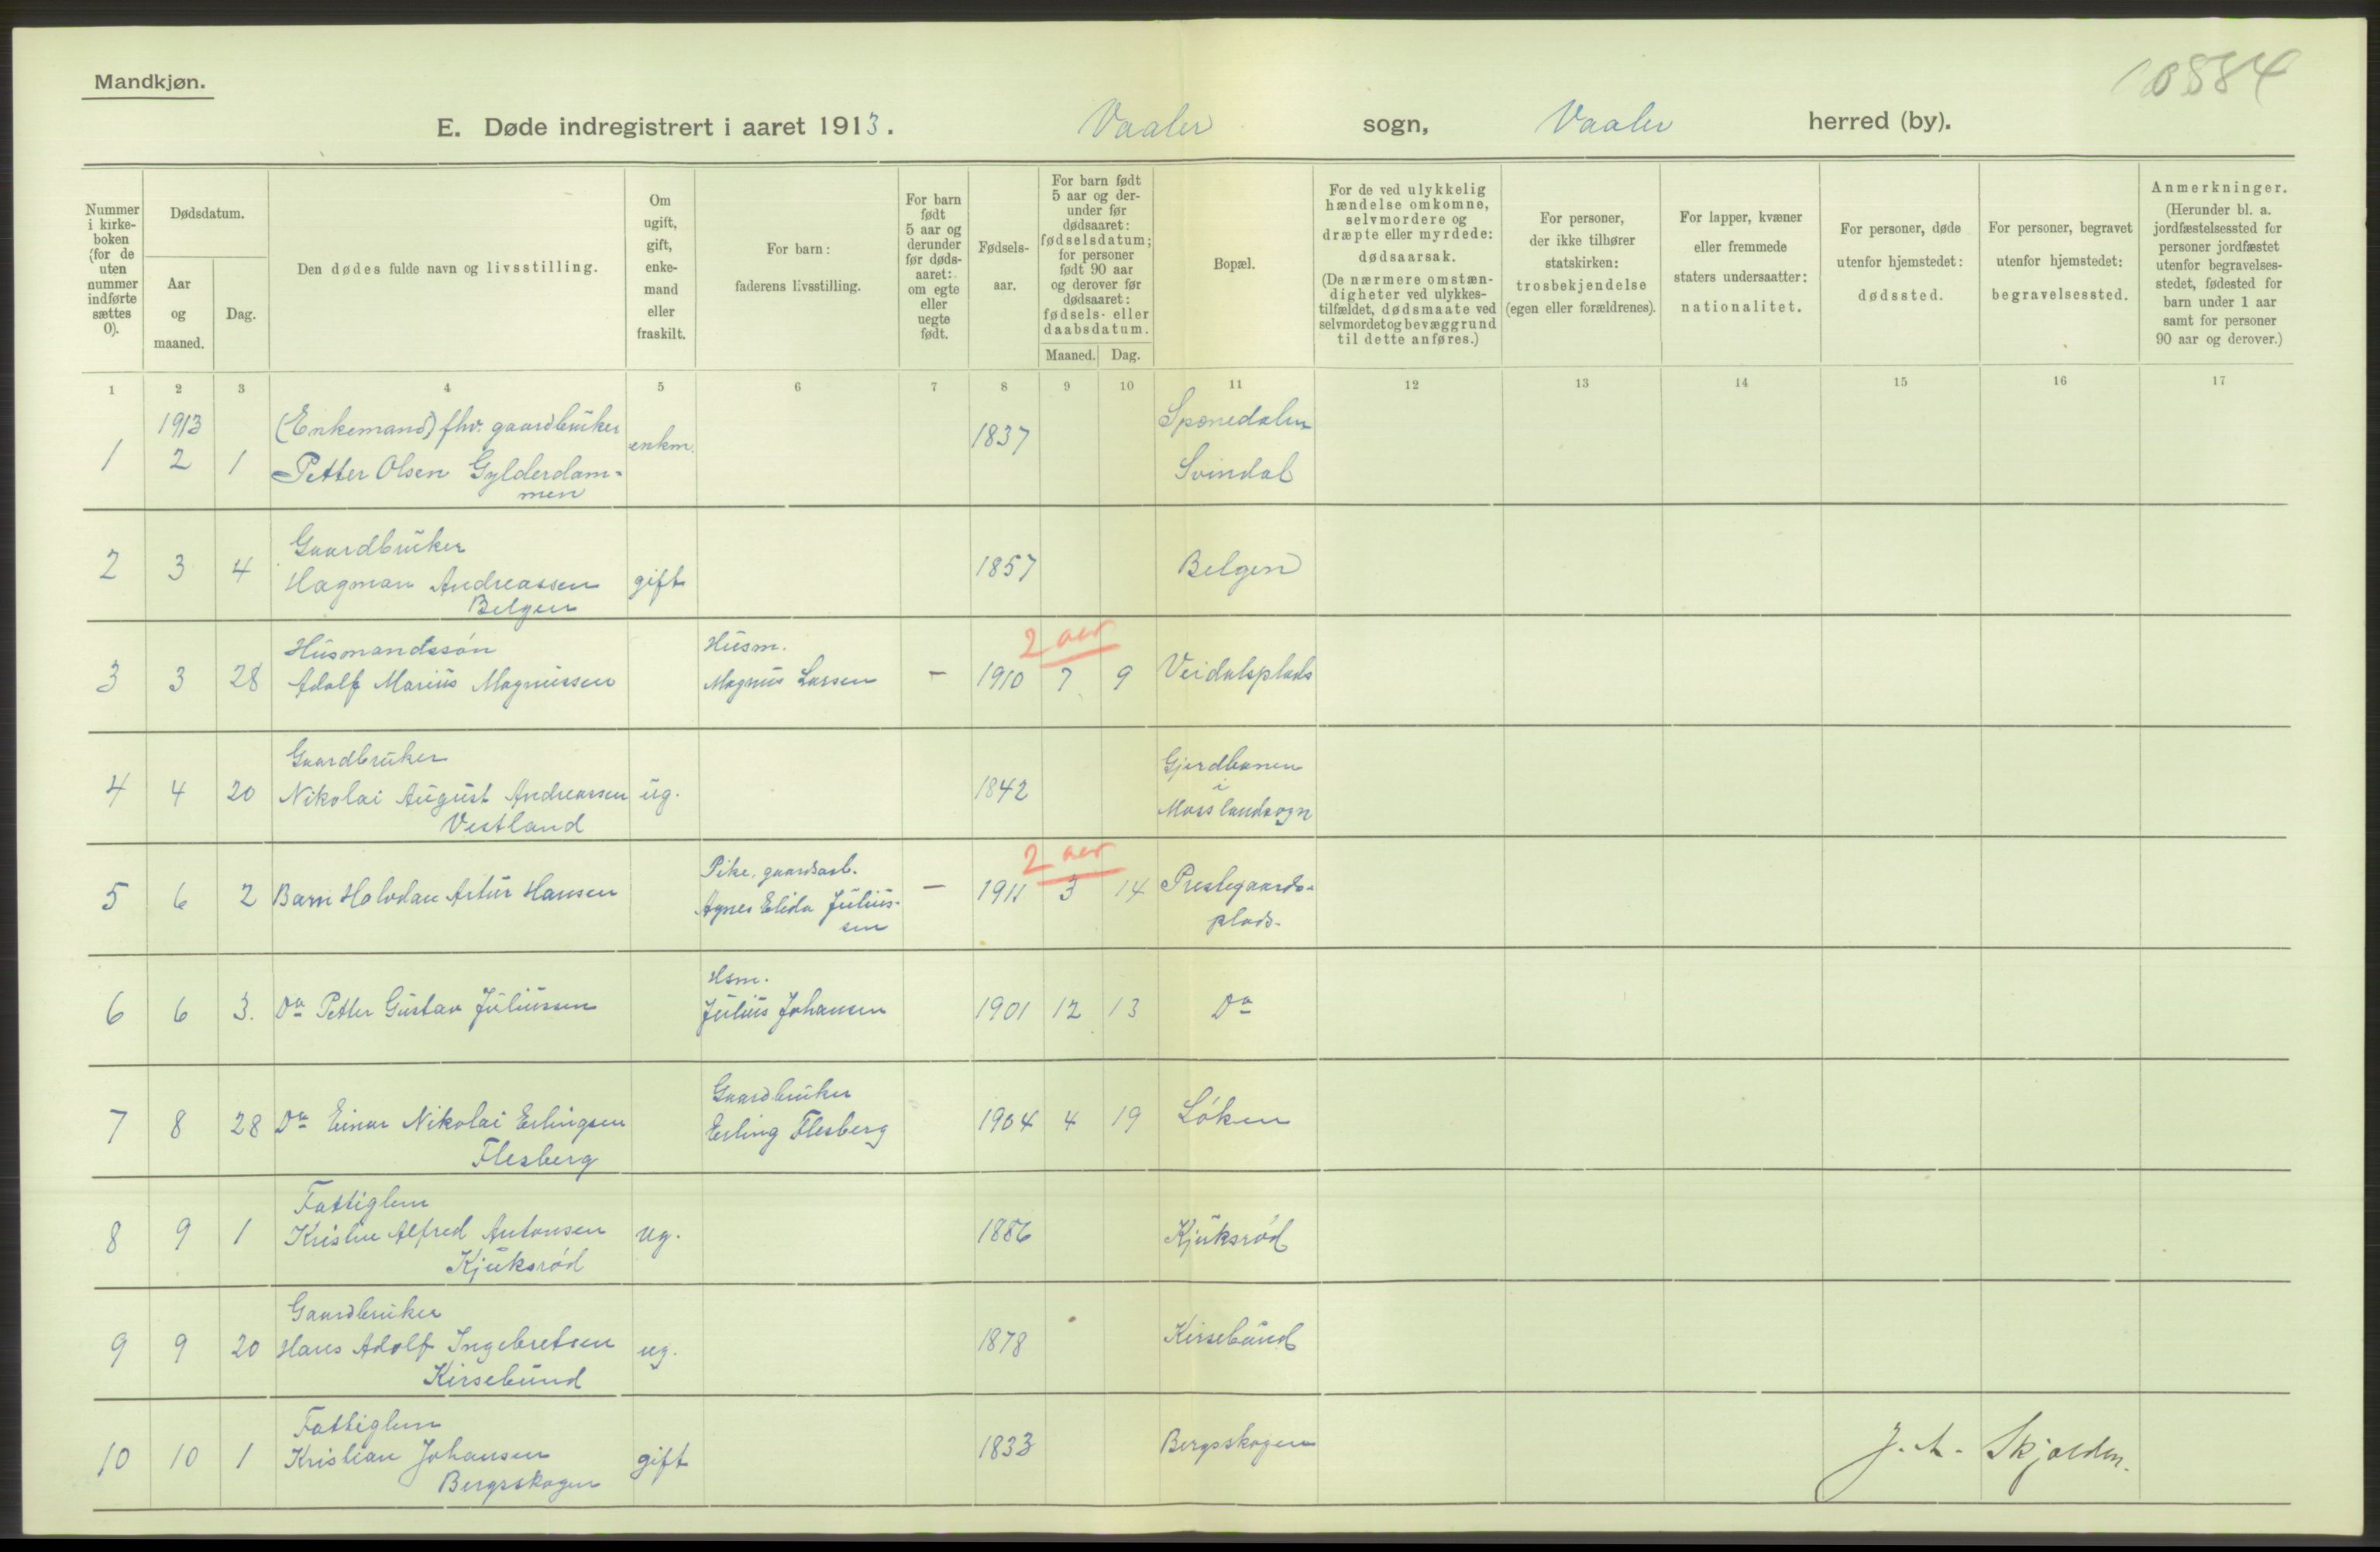 Mandkjøn.
10884
E. Døde indregistrert i aaret 1913.
Vaaler sogn, Vaaler herred (by).
Nummer i kirke-boken (for de uten nummer indførte sættes 0).
Dødsdatum.
Aar og maaned.
Dag.
Den dødes fulde navn og livsstilling.
Om ugift, gift, enke-mand eller fraskilt.
For barn: faderens livsstilling.
For barn født 5 aar og derunder før døds-aaret: om egte eller uegte født.
Fødsels-aar.
For barn født 5 aar og der-under før dødsaaret: fødselsdatum; for personer født 90 aar og derover før dødsaaret: fødsels- eller daabsdatum.
Maaned. Dag.
Bopæl.
For de ved ulykkelig hændelse omkomne, selvmordere og dræpte eller myrdede: dødsaarsak.
(De nærmere omstæn-digheter ved ulykkes-tilfældet, dødsmaate ved selvmordet og bevæggrund til dette anføres.)
For personer, der ikke tilhører statskirken: trosbekjendelse (egen eller forældrenes).
For lapper, kvæner eller fremmede staters undersaatter: nationalitet.
For personer, døde utenfor hjemstedet: dødssted.
For personer, begravet utenfor hjemstedet: begravelsessted.
Anmerkninger.
(Herunder bl. a. jordfæstelsessted for personer jordfæstet utenfor begravelses-stedet, fødested for barn under 1 aar samt for personer 90 aar og derover.)
1 2 3 4 5 6 7 8 9 10 11 12 13 14 15 16 17
1913 (Enkemand) fhv. gaardbruker Sponedalen
1 2 1 Petter Olsen Gylderdam- enkm. 1837 Svindal
men
Gaardbruker
2 3 4 Hagman Andreassen gift 1857 Belgen
Belgen
Husmandssøn Husm. 2 aar
3 3 28 Adolf Marius Magnussen Magnus Larsen — 1910 7 9 Veidalsplads
Gaardbruker Gjerdbanen
4 4 20 Nikolai August Andreassen ug. 1842 i
Vestland Moss landsogn
Pike, gaardsarb. 2 aar
5 6 2 Barn Halvdan Artur Hansen Agnes Elida Julius- — 1911 3 14 Prestegaards-
sen plads.
Hsm.
6 6 3. Do Petter Gustav Juliussen Julius Johansen 1901 12 13 Do
Gaardbruker
7 8 28 Do Einar Nikolai Erlingsen Erling Flesberg 1904 4 19 Løken
Flesberg
Fattiglem
8 9 1 Alfred Antonsen ug. 1886 Kjuksrød
Kjuksrød
Gaardbruker
9 9 20 Hans Adolf Ingebretsen ug. 1878 Kirsebund
Kirsebund
Fattiglem
10 10 1 Kristian Johansen gift 1833 Bergsskogen
Bergsskogen
J. A. Skjolden.